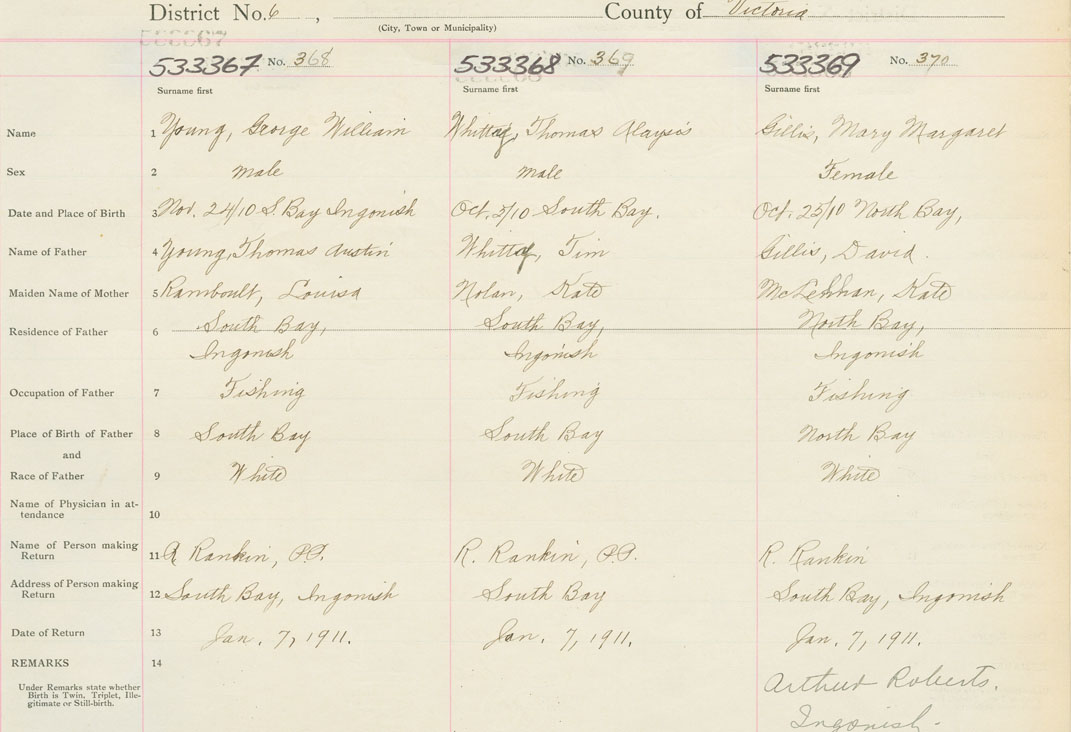 District No. 6 , County of Victoria
(City, Town or Municipality)
533367 No. 368 533368 No. 369 533369 No. 370
Surname first Surname first Surname first
Name 1 Young, George William Thomas Alaysis Gillis, Mary Margaret
Sex 2 male male Female
Date and Place of Birth 3 Nov. 24/10 S. Bay Ingonish Oct. 3/10 South Bay. Oct. 25/10 North Bay,
Name of Father 4 Young, Thomas Austin Tim Gillis, David.
Maiden Name of Mother 5 Ramboult, Louisa Nolan, Kate Kate
Residence of Father 6 South Bay, South Bay, North Bay,
Ingonish Ingonish Ingonish
Occupation of Father 7 Fishing Fishing Fishing
Place of Birth of Father 8 South Bay South Bay North Bay
and
Race of Father 9 White White White
Name of Physician in at-
tendance 10
Name of Person making
Return 11 R Rankin, P.P. R. Rankin, P.P. R. Rankin
Address of Person making
Return 12 South Bay, Ingonish South Bay South Bay, Ingonish
Date of Return 13 Jan. 7, 1911. Jan. 7, 1911. Jan. 7, 1911.
REMARKS 14
Under Remarks state whether
Birth is Twin. Triplet, Ille-
gitimate or Still-birth.
Arthur Roberts.
Ingonish.